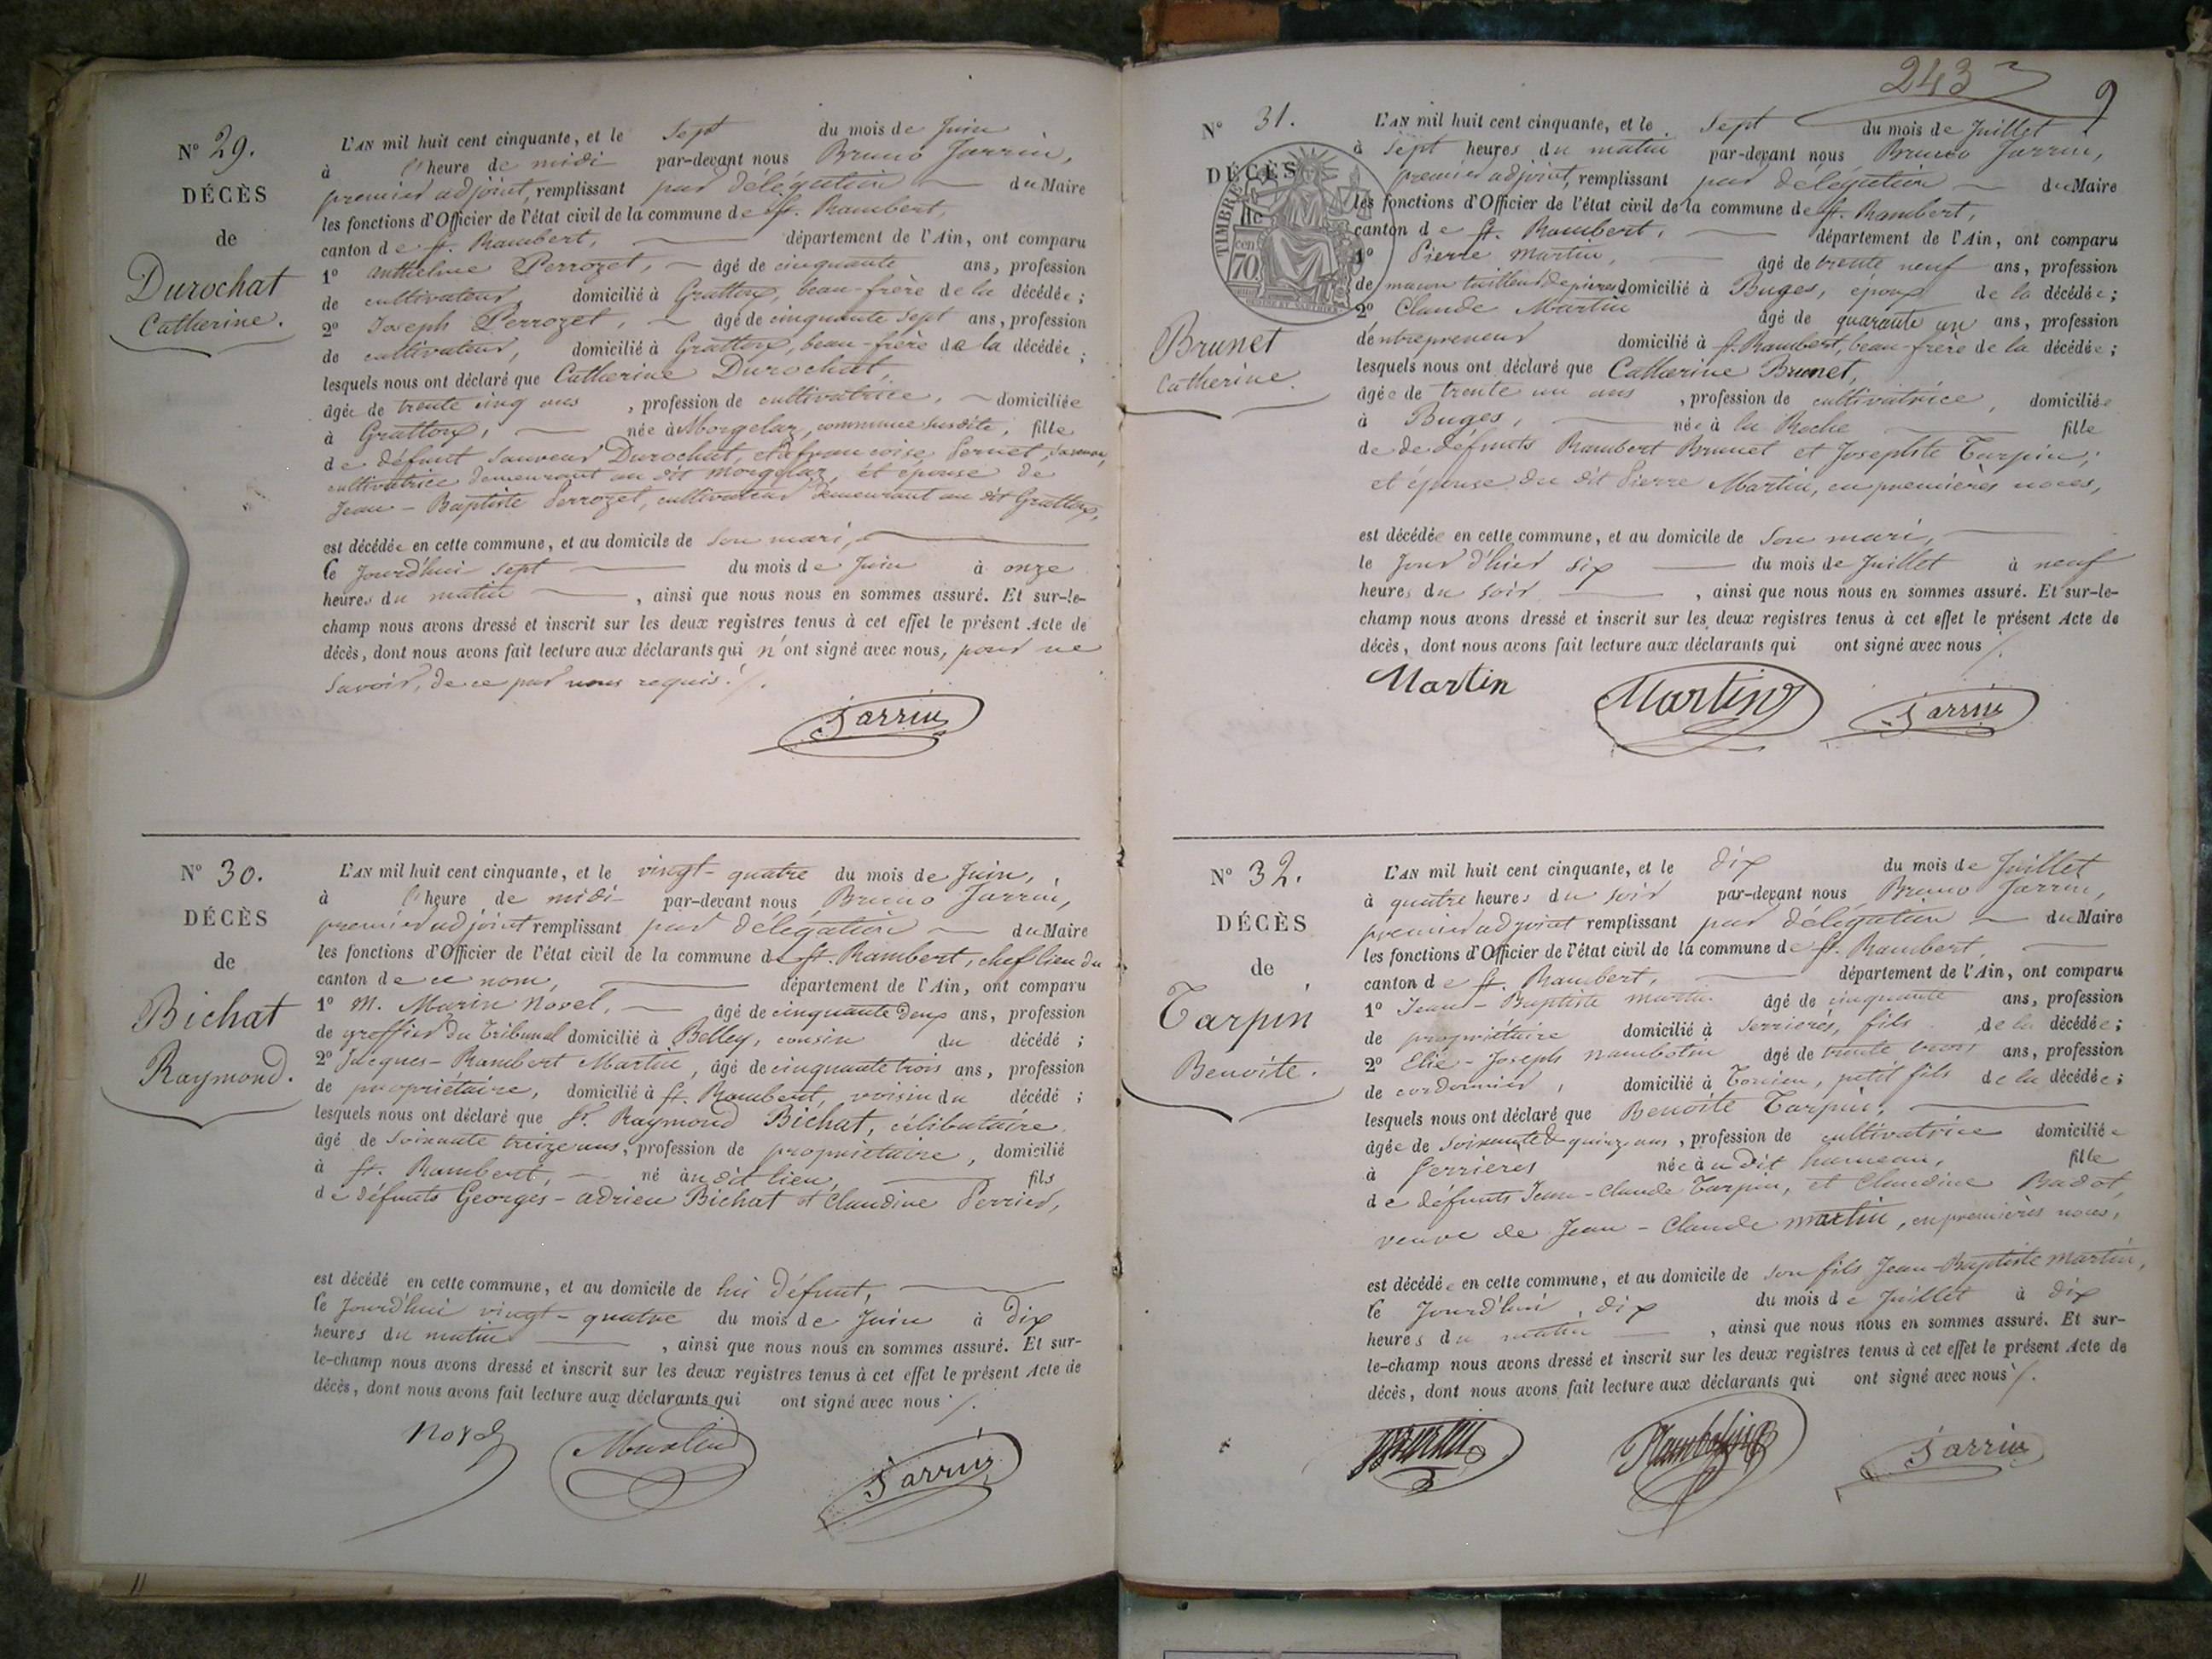 Nº 29.
DÉCÈS
de
Durochat
Catherine.
L'AN mil huit cent cinquante, et le Sept du mois de Juin
à l'heure de midi par-devant nous Bruno Jarrin,
premier adjoint, remplissant par délégation du Maire
les fonctions d'Officier de l'état civil de la commune de St. Rambert,
canton de St. Rambert, département de l'Ain, ont comparu
1º Anthelme Perrozet, âgé de cinquante ans, profession
de cultivateur, domicilié à Grattoux, beau-frère de la décédée;
2º Joseph Perrozet, âgé de cinquante sept ans, profession
de cultivateur, domicilié à Grattoux, beau-frère de la décédée;
lesquels nous ont déclaré que Catherine Durochat,
âgée de trente cinq ans, profession de cultivatrice, domiciliée
à Grattoux, née à Morgelaz, commune susdite, fille
de défunt Sauveur Durochat, et de françoise Pernet,
cultivatrice demeurant au dit Morgelaz, et épouse de
Jean-Baptiste Perrozet, cultivateur demeurant au dit Grattoux,
est décédée en cette commune, et au domicile de son mari,
le Jourd'hui sept du mois de Juin à onze
heures du matin, ainsi que nous nous en sommes assuré. Et sur-le-
champ nous avons dressé et inscrit sur les deux registres tenus à cet effet le présent Acte de
décès, dont nous avons fait lecture aux déclarants qui n'ont signé avec nous, pour ne
savoir, de ce par nous requis ./.
Jarrin
Nº 30.
DÉCÈS
de
Bichat
Raymond.
L'AN mil huit cent cinquante, et le vingt-quatre du mois de Juin,
à l'heure de midi par-devant nous Bruno Jarrin,
premier adjoint remplissant par délégation du Maire
les fonctions d'Officier de l'état civil de la commune de St. Rambert, chef lieu du
canton de ce nom, département de l'Ain, ont comparu
1º M. Marin Novel, âgé de cinquante deux ans, profession
de greffier du Tribunal domicilié à Belley, cousin du décédé;
2º Jacques-Rambert Martin, âgé de cinquante trois ans, profession
de propriétaire, domicilié à St. Rambert, voisin du décédé;
lesquels nous ont déclaré que Sr. Raymond Bichat, célibataire
âgé de soixante treize ans, profession de propriétaire, domicilié
à St. Rambert, né au dit lieu, fils
de défunts Georges-adrien Bichat et Claudine Perrier,
est décédé en cette commune, et au domicile de lui défunt,
le Jourd'hui vingt-quatre du mois de Juin à dix
heures du matin, ainsi que nous nous en sommes assuré. Et sur-
le-champ nous avons dressé et inscrit sur les deux registres tenus à cet effet le présent Acte de
décès, dont nous avons fait lecture aux déclarants qui ont signé avec nous ./.
Novel Martin Jarrin
243
9
Nº 31.
DÉCÈS
de
TIMBRE
70
Brunet
Catherine.
L'AN mil huit cent cinquante, et le Sept du mois de Juillet
à sept heures du matin par-devant nous Bruno Jarrin,
premier adjoint, remplissant par délégation du Maire
les fonctions d'Officier de l'état civil de la commune de St. Rambert,
canton de St. Rambert, département de l'Ain, ont comparu
1º Pierre Martin, âgé de trente neuf ans, profession
de maçon tailleur de pierres domicilié à Buges, époux de la décédée;
2º Claude Martin âgé de quarante un ans, profession
d'entrepreneur domicilié à St. Rambert, beau-frère de la décédée;
lesquels nous ont déclaré que Catherine Brunet,
âgée de trente un ans, profession de cultivatrice, domiciliée
à Buges, née à la Roche fille
de de défunts Rambert Brunet et Josephte Tarpin;
et épouse du dit Pierre Martin, en premières noces,
est décédée en cette commune, et au domicile de son mari,
le Jour d'hier six du mois de Juillet à neuf
heures du soir, ainsi que nous nous en sommes assuré. Et sur-le-
champ nous avons dressé et inscrit sur les deux registres tenus à cet effet le présent Acte de
décès, dont nous avons fait lecture aux déclarants qui ont signé avec nous ./.
Martin Martin Jarrin
Nº 32.
DÉCÈS
de
Tarpin
Benoite.
L'AN mil huit cent cinquante, et le dix du mois de Juillet
à quatre heures du soir par-devant nous Bruno Jarrin,
premier adjoint remplissant par délégation du Maire
les fonctions d'Officier de l'état civil de la commune de St. Rambert,
canton de St. Rambert, département de l'Ain, ont comparu
1º Jean-Baptiste Martin âgé de cinquante ans, profession
de propriétaire domicilié à Serrieres, fils de la décédée;
2º Elie-Joseph Nambotin âgé de trente trois ans, profession
de cordonnier, domicilié à Torcieu, petit fils de la décédée;
lesquels nous ont déclaré que Benoite Tarpin,
âgée de soixante quinze ans, profession de cultivatrice domiciliée
à Serrieres née au dit hameau, fille
de défunts Jean-Claude Tarpin, et Claudine Badot,
veuve de Jean-Claude Martin, en premières noces,
est décédée en cette commune, et au domicile de son fils Jean-Baptiste Martin,
le Jourd'hui, dix du mois de Juillet à dix
heures du matin, ainsi que nous nous en sommes assuré. Et sur-
le-champ nous avons dressé et inscrit sur les deux registres tenus à cet effet le présent Acte de
décès, dont nous avons fait lecture aux déclarants qui ont signé avec nous ./.
Martin Nambotin Jarrin